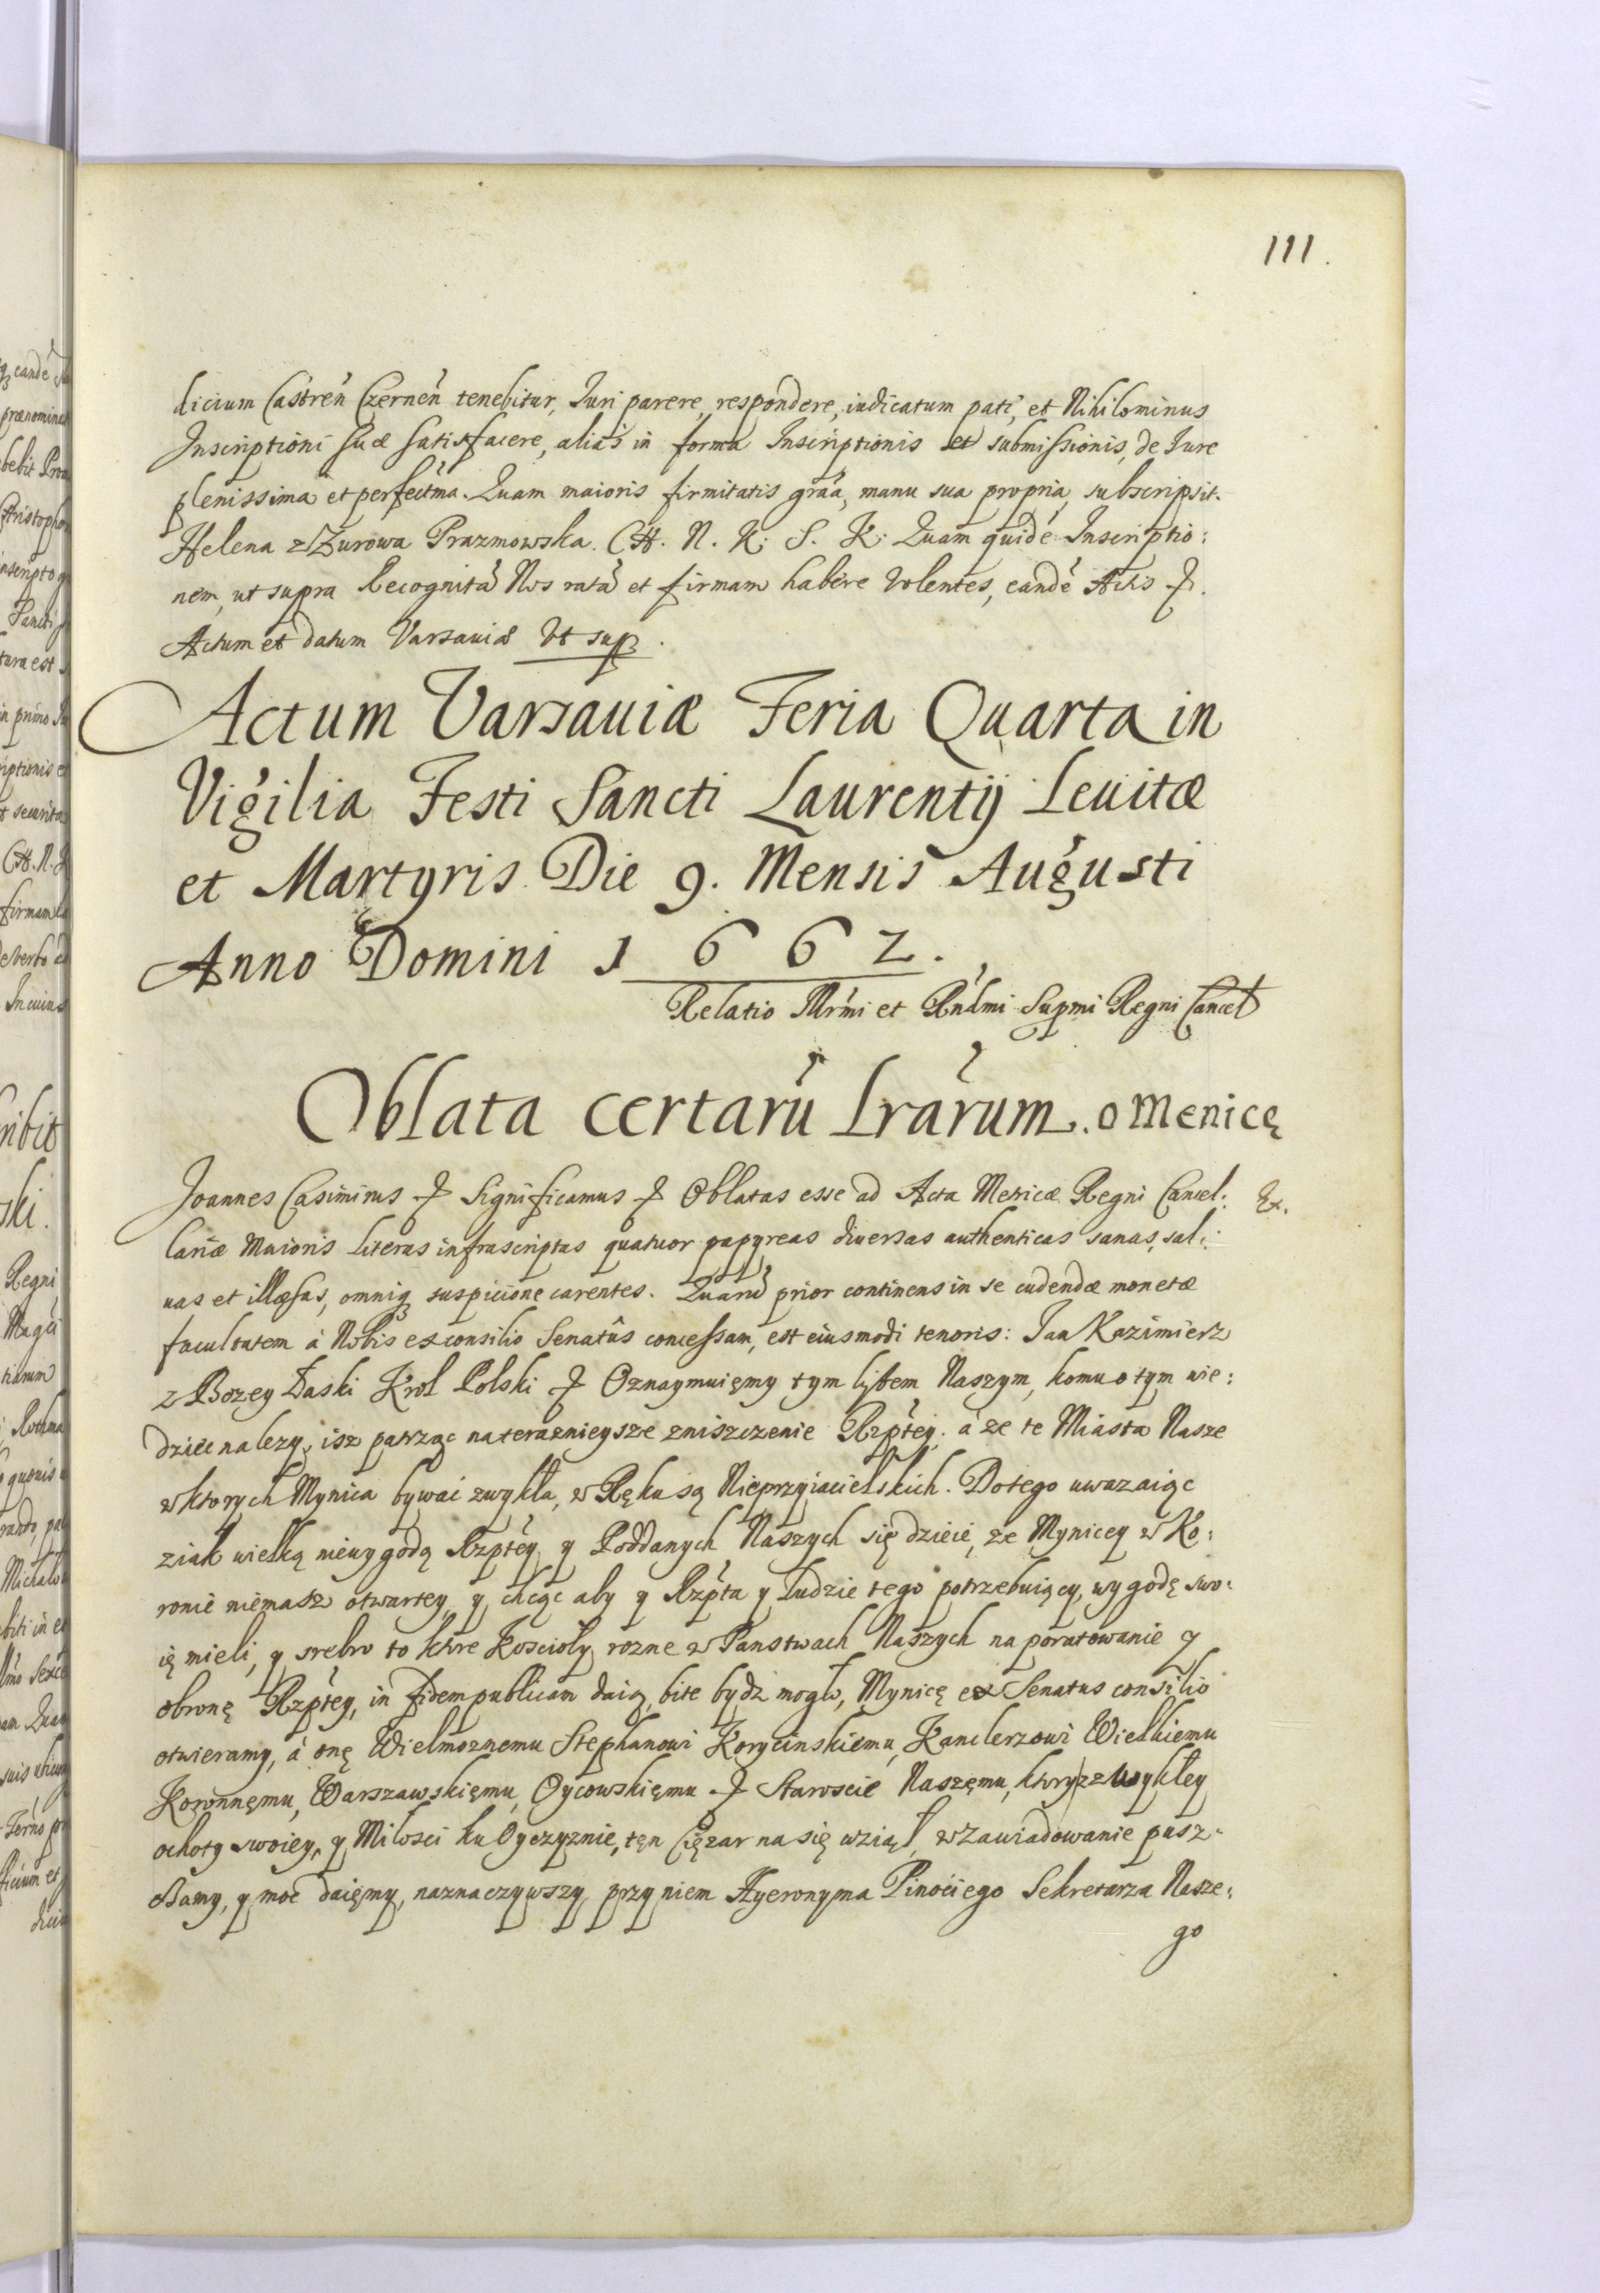 111.
dicium Castreñ Czerneñ tenebitur, Iuri parere, respondere, iudicatum pati, et Nihilominus
Inscriptioni suæ satisfacere, alias in forma Inscriptionis et submissionis, de Iure
plenissima et perfectma. Quam maioris firmitatis graa, manu sua propria, subscripsit.
Helena z Zurowa Prazmowska. CH. N. K. S. K. Quam quidē Inscriptio:
nem, ut supra Recognitā Nos ratā et firmam habere Volentes, eandē Actis
Actum et datum Varsauiæ Vt sup.
Actum Varsauiæ Feria Quarta in
Vigilia Festi Sancti Laurentij Leuitæ
et Martyris Die 9. Mensis Augusti
Anno Domini 1662.
Relatio Illrmi et Rndmi Supmi Regni Cancel
Oblata certarū Lrarum. o Menicę
Joannes Casimirus Significamus Oblatas esse ad Acta Metricæ Regni Cancel: Ex.
lariæ Maioris literas infrascriptas quatuor papyreas diuersas authenticas sanas, sal:
uas et illæsas, omniq suspicione carentes. Quarū prior continens in se cudendæ monetæ
facultatem á Nobis ex consilio Senatûs concessam, est eiusmodi tenoris: Jan Kazimierz
z Bozey Łaski Krol Polski Oznaymuięmy tym listem Naszym, komu o tym wie:
dziec nalezy, isz patrząc na terazniejsze zniszczenie Rzptey. á ze te Miasta Nasze
w ktorych Mynica bywac zwykła, w Ręku są Nieprzyiacielskich. Do tego uwazaiąc
z iak wielką niewygodą Rzptey y Poddanych Naszych się dzieie, ze Mynicey w Ko:
ronie niemasz otwartey y chcąc aby y Rzpta y ludzie tego potrzebuiący, wygodę swo:
ię mieli, y srebro to ktore Koscioly rozne w Panstwach Naszych na poratowanie y
obronę Rzptey, in fidem publicam daią, bite bydz mogło, Mynicę ex Senatus consilio
otwieramy, á onę Wielmoznemu Stephanowi Korycinskięmu, Kanclerzowi Wielkiemu
Koronnęmu, Warszawskięmu, Oycowskięmu Staroscie Naszęmu, ktory z zwykłey
ochoty swoiey, y Milosci ku Oyczyznie, tęn Cięzar na się wziął, w Zawiadowanie pusz:
czamy, y moc daięmy, naznaczywszy przy niem Hyeronyma Pinociego Sekretarza Nasze:
go